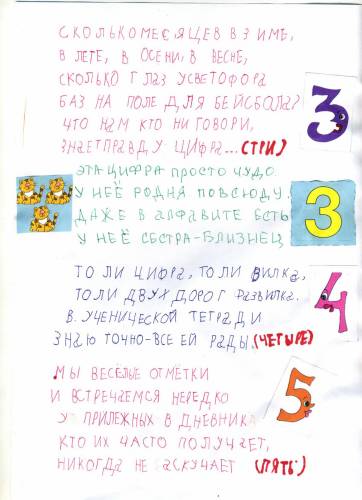 СКОЛЬКО МЕСЯЦЕВ В ЗИМЕ,
В ЛЕТЕ, В ОСЕНИ, В ВЕСНЕ,
СКОЛЬКО ГЛАЗ У СВЕТОФОРА
БАЗ НА ПОЛЕ ДЛЯ БЕЙСБОЛА?
ЧТО НАМ КТО НИ ГОВОРИ,
ЗНАЕТ ПРАВДУ ЦИФРА... (ТРИ)
3
ЭТА ЦИФРА ПРОСТО ЧУДО.
У НЕЁ РОДНЯ ПОВСЮДУ.
ДАЖЕ В АЛФАВИТЕ ЕСТЬ
У НЕЁ СЕСТРА-БЛИЗНЕЦ
3
ТО ЛИ ЦИФРА, ТО ЛИ ВИЛКА,
ТО ЛИ ДВУХ ДОРОГ РАЗВИЛКА.
В УЧЕНИЧЕСКОЙ ТЕТРАДИ
ЗНАЮ ТОЧНО-ВСЕ ЕЙ РАДЫ. (ЧЕТЫРЕ)
4
МЫ ВЕСЁЛЫЕ ОТМЕТКИ
И ВСТРЕЧАЕМСЯ НЕРЕДКО
У ПРИЛЕЖНЫХ В ДНЕВНИКА
КТО ИХ ЧАСТО ПОЛУЧАЕТ,
НИКОГДА НЕ ЗАСКУЧАЕТ (ПЯТЬ)
5